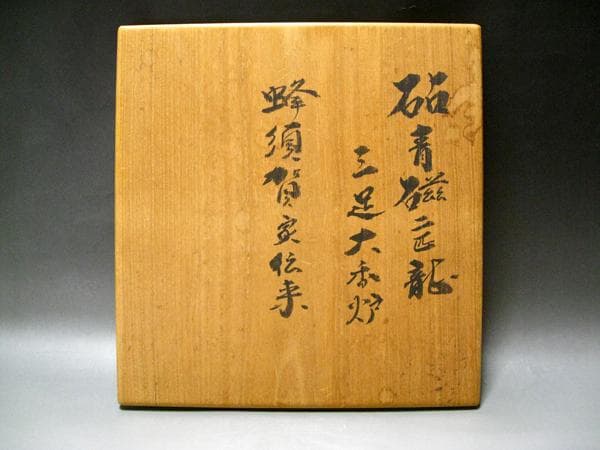 砧青磁二匹龍
三足大香炉
蜂須賀家伝来